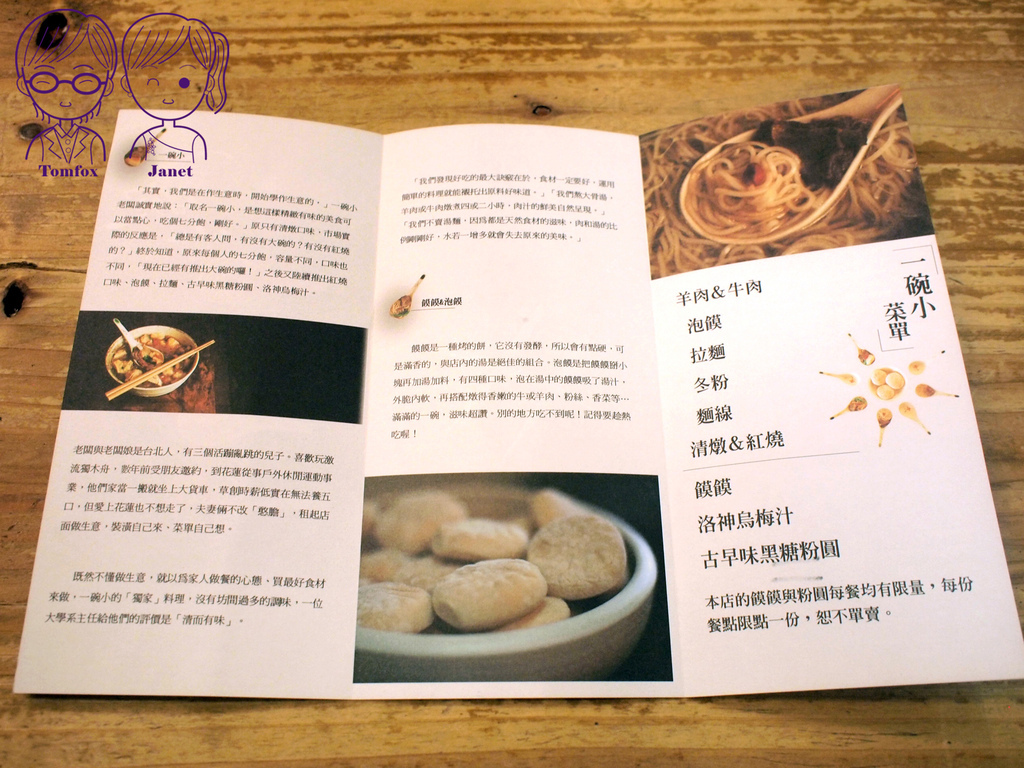 Tomfox
Janet
一碗小
「其實，我們是在作生意時，開始學作生意的。」一碗小
老闆誠實地說：「取名一碗小，是想這樣精緻有味的美食可
以當點心，吃個七分飽，剛好。」原只有清燉口味，市場實
際的反應是，「總是有客人問，有沒有大碗的？有沒有紅燒
的？」終於知道，原來每個人的七分飽，容量不同，口味也
不同，「現在已經有推出大碗的囉！」之後又陸續推出紅燒
口味、泡饃、拉麵、古早味黑糖粉圓、洛神烏梅汁。
老闆與老闆娘是台北人，有三個活蹦亂跳的兒子。喜歡玩激
流獨木舟，數年前受朋友邀約，到花蓮從事戶外休閒運動事
業，他們家當一搬就坐上大貨車，草創時薪低實在無法養五
口，但愛上花蓮也不想走了，夫妻倆不改「憨膽」，租起店
面做生意，裝潢自己來、菜單自己想。
既然不懂做生意，就以爲家人做餐的心態，買最好食材
來做，一碗小的「獨家」料理，沒有坊間過多的調味，一位
大學系主任給他們的評價是「清而有味」。
「我們發現好吃的最大訣竅在於，食材一定要好，運用
簡單的料理就能襯托出原料好味道。」「我們熬大骨湯，
羊肉或牛肉燉煮四或二小時，肉汁的鮮美自然呈現。」
「我們不賣湯麵，因爲都是天然食材的滋味，肉和湯的比
例剛剛好，水若一增多就會失去原來的美味。」
饃饃&泡饃
饃饃是一種烤的餅，它沒有發酵，所以會有點硬，可
是滿香的，與店內的湯是絕佳的組合。泡饃是把饃饃掰小
塊再加湯加料，有四種口味，泡在湯中的饃饃吸了湯汁，
外脆內軟，再搭配燉得香嫩的牛或羊肉、粉絲、香菜等…
滿滿的一碗，滋味超讚。別的地方吃不到呢！記得要趁熱
吃喔！
「一碗小
菜單」
羊肉&牛肉
泡饃
拉麵
冬粉
麵線
清燉&紅燒
饃饃
洛神烏梅汁
古早味黑糖粉圓
本店的饃饃與粉圓每餐均有限量，每份
餐點限點一份，恕不單賣。